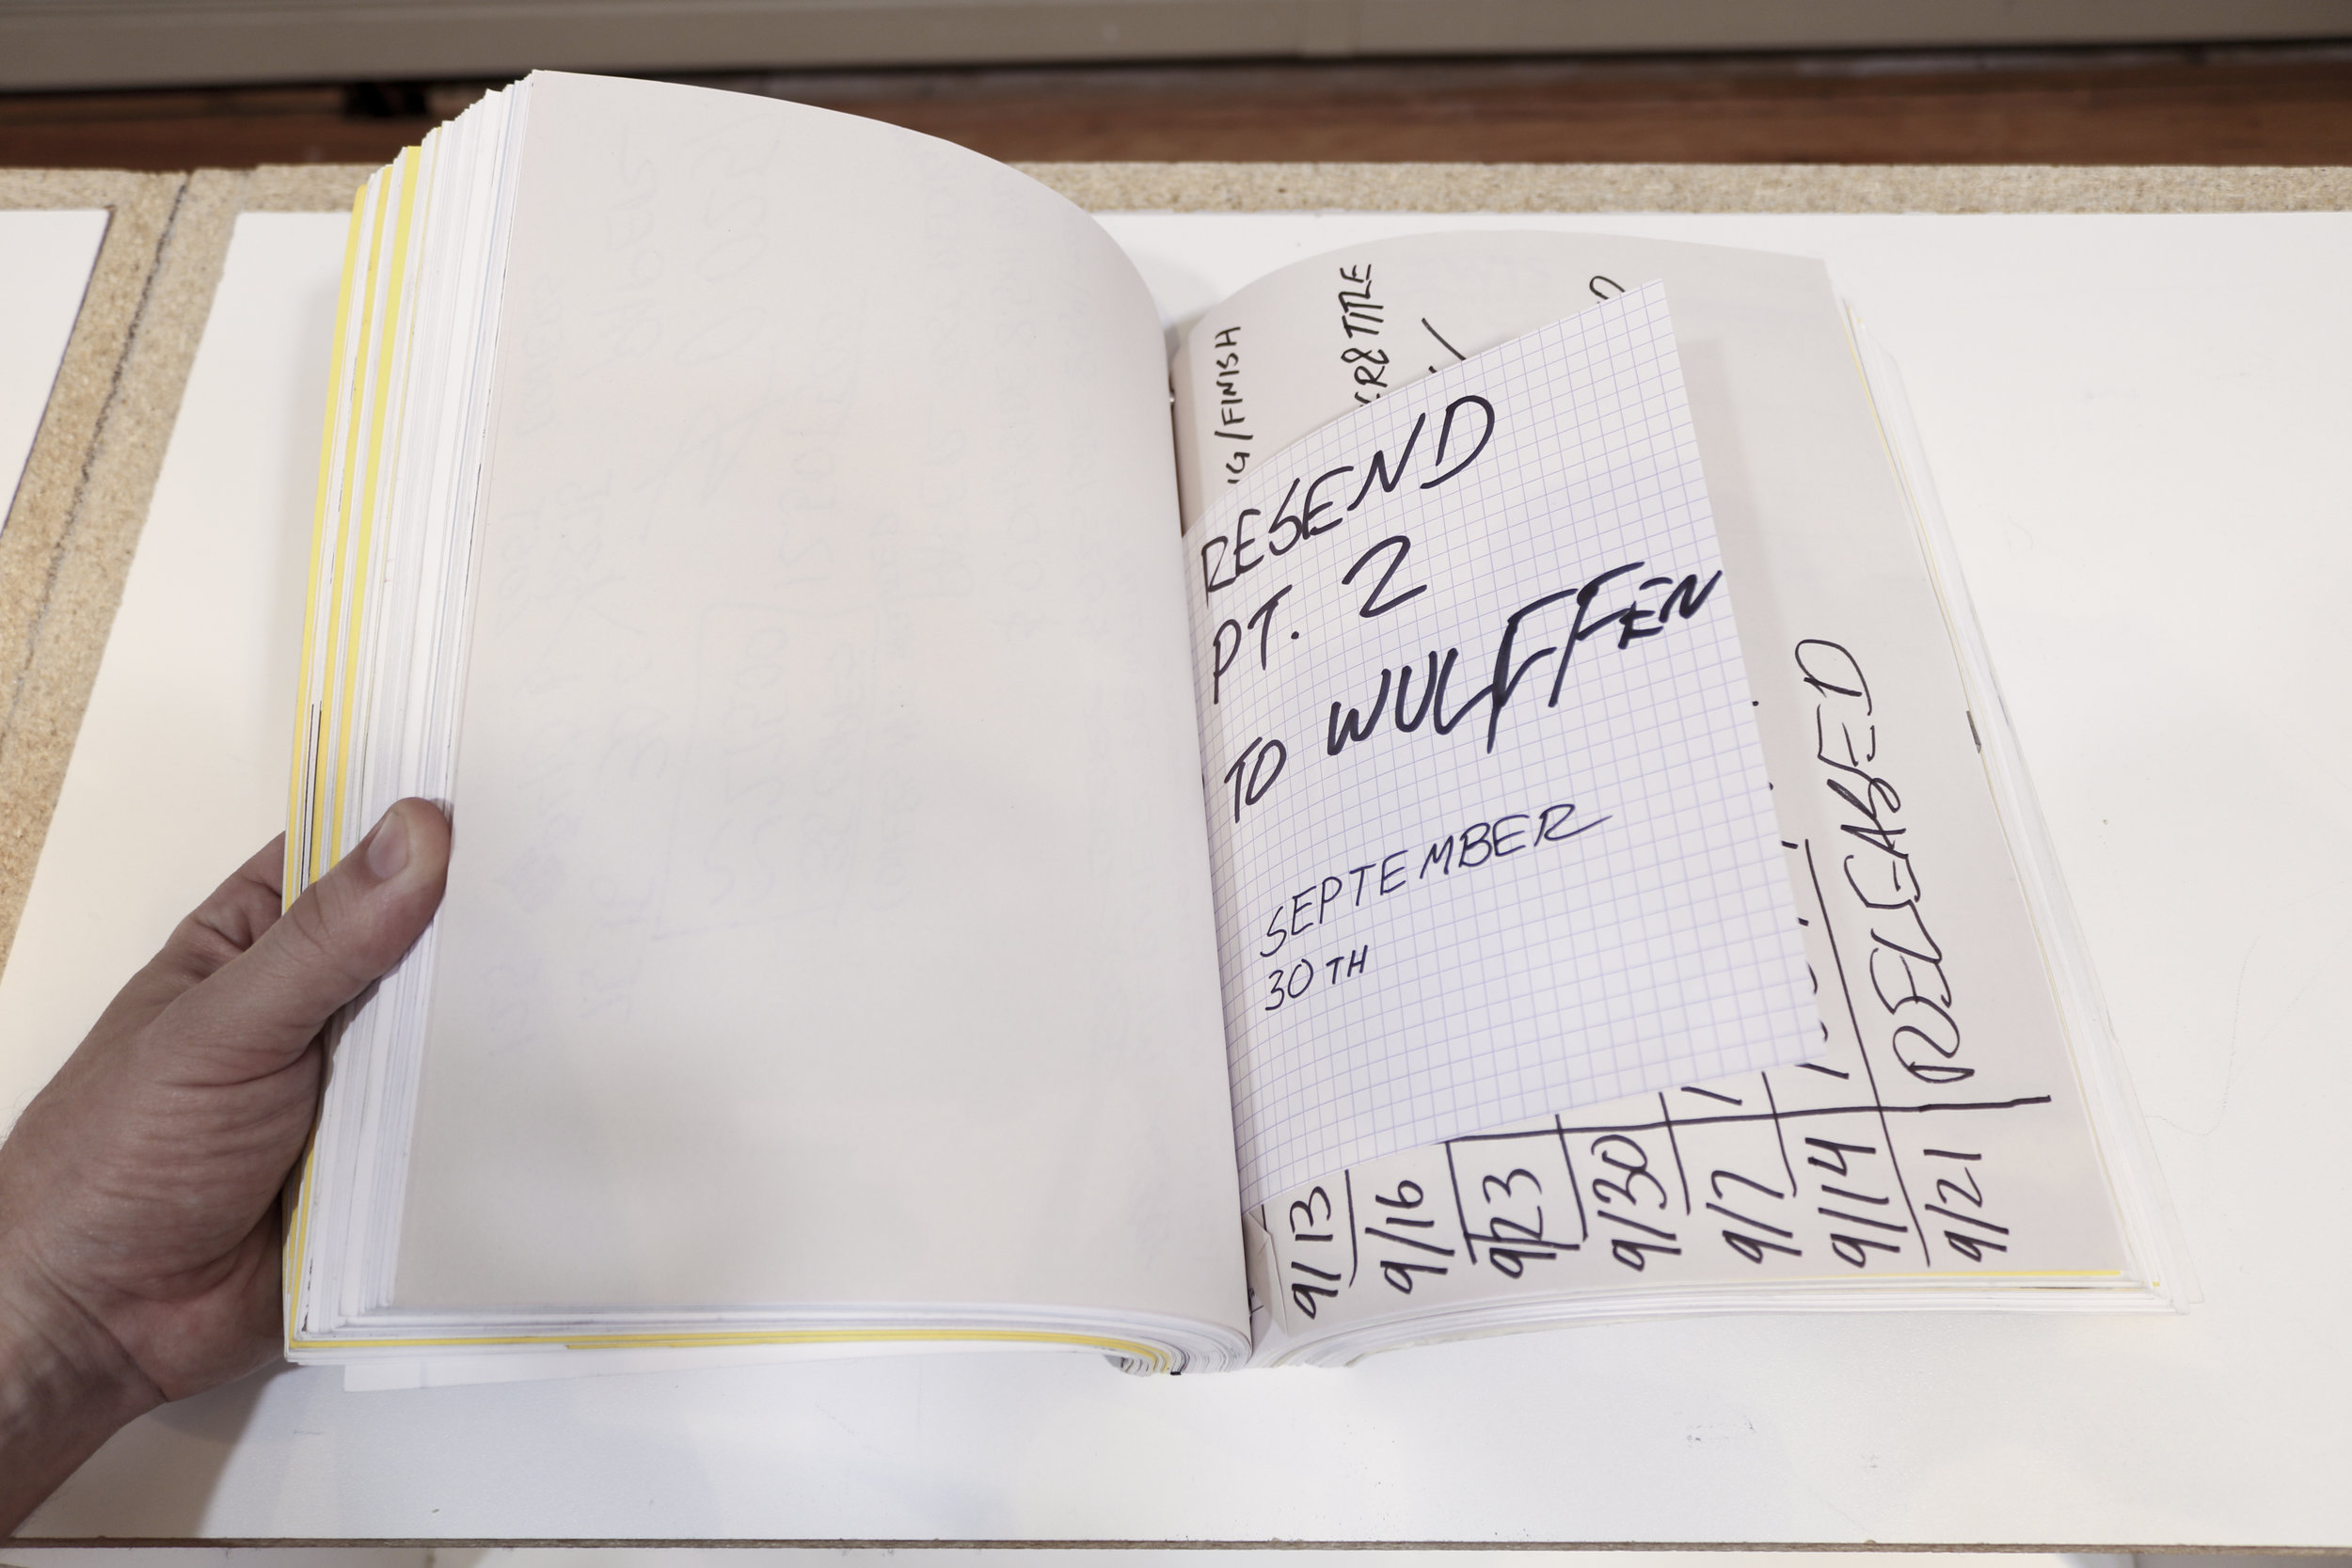 RESEND
PT. 2
TO WULFFEN
SEPTEMBER
30TH
G/FINISH
CR& TITLE
9/13
9/16
9/23
9/30
9/7
9/14
9/21 RELEASED